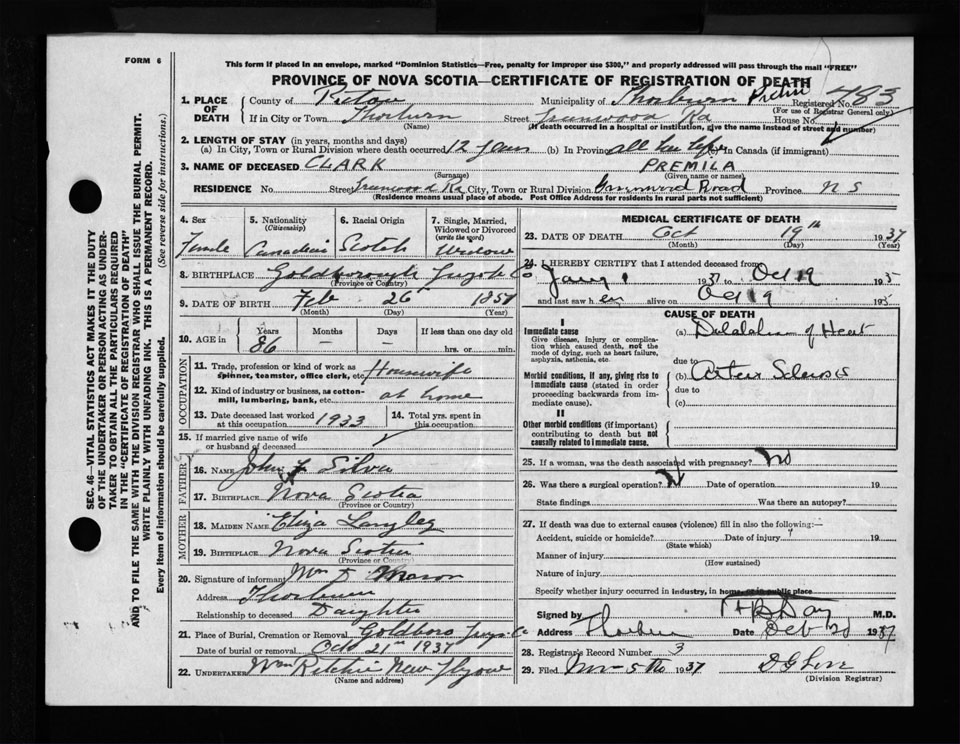 FORM 6
This form if placed in an envelope, marked "Dominion Statistics—Free, penalty for improper use $300," and properly addressed will pass through the mail "FREE"
PROVINCE OF NOVA SCOTIA—CERTIFICATE OF REGISTRATION OF DEATH
1. PLACE OF DEATH { County of Pictou Municipality of Thorburn Registered No. 483
(For use of Registrar General only)
If in City or Town Thorburn Street House No.
(If death occurred in a hospital or institution, give the name instead of street and number)
2. LENGTH OF STAY (in years, months and days)
(a) In City, Town or Rural Division where death occurred 12 years (b) In Province all her life (c) In Canada (if immigrant)
3. NAME OF DECEASED CLARK PREMILA
(Surname) (Given name or names)
RESIDENCE No. Street City, Town or Rural Division Road Province N S
(Residence means usual place of abode. Post Office Address for residents in rural parts not sufficient)
4. Sex Female
5. Nationality (Citizenship) Canadian
6. Racial Origin Scotch
7. Single, Married, Widowed or Divorced (write the word) Widow
8. BIRTHPLACE Co
(Province or Country)
9. DATE OF BIRTH Feb 26 1851
(Month) (Day) (Year)
10. AGE in { Years 86 Months – Days – If less than one day old hrs. or min.
OCCUPATION
11. Trade, profession or kind of work as spinner, teamster, office clerk, etc. Housewife
12. Kind of industry or business, as cotton-mill, lumbering, bank, etc. at home
13. Date deceased last worked at this occupation 1933 14. Total yrs. spent in this occupation
15. If married give name of wife or husband of deceased
FATHER
16. NAME John Silver
17. BIRTHPLACE Nova Scotia
(Province or Country)
MOTHER
18. MAIDEN NAME Eliza Langley
19. BIRTHPLACE Nova Scotia
(Province or Country)
20. Signature of informant Mason
Address Thorburn
Relationship to deceased Daughter
21. Place of Burial, Cremation or Removal Goldboro Co
Date of burial or removal Oct 21st 1937
22. UNDERTAKER Wm Ritchie New
(Name and address)
MEDICAL CERTIFICATE OF DEATH
23. DATE OF DEATH Oct 19th 1937
(Month) (Day) (Year)
24. I HEREBY CERTIFY that I attended deceased from
Jany 1 1937 to Oct 19 193
and last saw her alive on Oct 19 193
CAUSE OF DEATH
I
Immediate cause
Give disease, injury or complication which caused death, not the mode of dying, such as heart failure, asphyxia, asthenia, etc.
(a) of Heart
due to
Morbid conditions, if any, giving rise to immediate cause (stated in order proceeding backwards from immediate cause).
(b)
due to
(c)
II
Other morbid conditions (if important) contributing to death but not causally related to immediate cause.
25. If a woman, was the death associated with pregnancy? No
26. Was there a surgical operation? Date of operation 19
State findings Was there an autopsy?
27. If death was due to external causes (violence) fill in also the following:—
Accident, suicide or homicide? Date of injury 19
(State which)
Manner of injury
(How sustained)
Nature of injury
Specify whether injury occurred in industry, in home, or in public place
Signed by Day M.D.
Address Thorburn Date 20 1937
28. Registrar's Record Number 3
29. Filed Nov 5th 1937
(Division Registrar)
SEC. 46—VITAL STATISTICS ACT MAKES IT THE DUTY
OF THE UNDERTAKER OR PERSON ACTING AS UNDER-
TAKER TO OBTAIN ALL THE PARTICULARS REQUIRED
IN THE "CERTIFICATE OF REGISTRATION OF DEATH"
AND TO FILE THE SAME WITH THE DIVISION REGISTRAR WHO SHALL ISSUE THE BURIAL PERMIT.
WRITE PLAINLY WITH UNFADING INK. THIS IS A PERMANENT RECORD.
Every item of information should be carefully supplied. (See reverse side for instructions.)